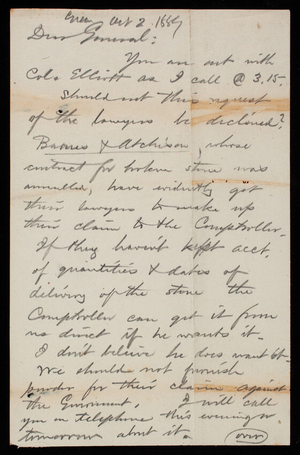 Oct 2. 1889
Dear General:
You are out with
Col. Elliott as I call @ 3.15.
Should not this request
of the lawyers be declined?
Barnes & Atchison, whose
contract for broken stone was
annulled, have evidently got
their lawyers to make up
their claim to the Comptroller.
If they haven't kept acct.
of quantities & dates of
delivery of the stone the
Comptroller can get it from
us direct if he wants it.
I don't believe he does want it.
We should not furnish
powder for their claim against
the Government. I will call
you on telephone this evening or
tomorrow about it.
(over)